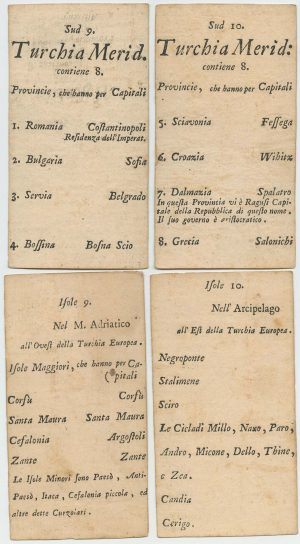 Sud 9.
Turchia Merid.
contiene 8.
Provincie, che hanno per Capitali
1. Romania Costantinopoli
Residenza dell'Imperat.
2. Bulgaria Sofia
3. Servia Belgrado
4. Bossina Bosna Scio
Sud 10.
Turchia Merid:
contiene 8.
Provincie, che hanno per Capitali
5. Sciavonia Fessega
6. Croazia Wihitz
7. Dalmazia Spalatro
In questa Provincia vi è Ragusi Capi-
tale della Repubblica di questo nome.
Il suo governo è aristocratico.
8. Grecia Salonichi
Isole 9.
Nel M. Adriatico
all'Ovest della Turchia Europea.
Isole Maggiori, che hanno per Ca-
(pitali
Corfù Corfù
Santa Maura Santa Maura
Cefalonia Argostoli
Zante Zante
Le Isole Minori sono Pacsò, Anti-
Pacsò, Itaca, Cefalonia piccola, ed
altre dette Curzolari.
Isole 10.
Nell' Arcipelago
all'Est della Turchia Europea.
Negroponte
Stalimene
Sciro
Le Cicladi Millo, Naxo, Paro,
Andro, Micone, Dello, Thine,
e Zea.
Candia
Cerigo.